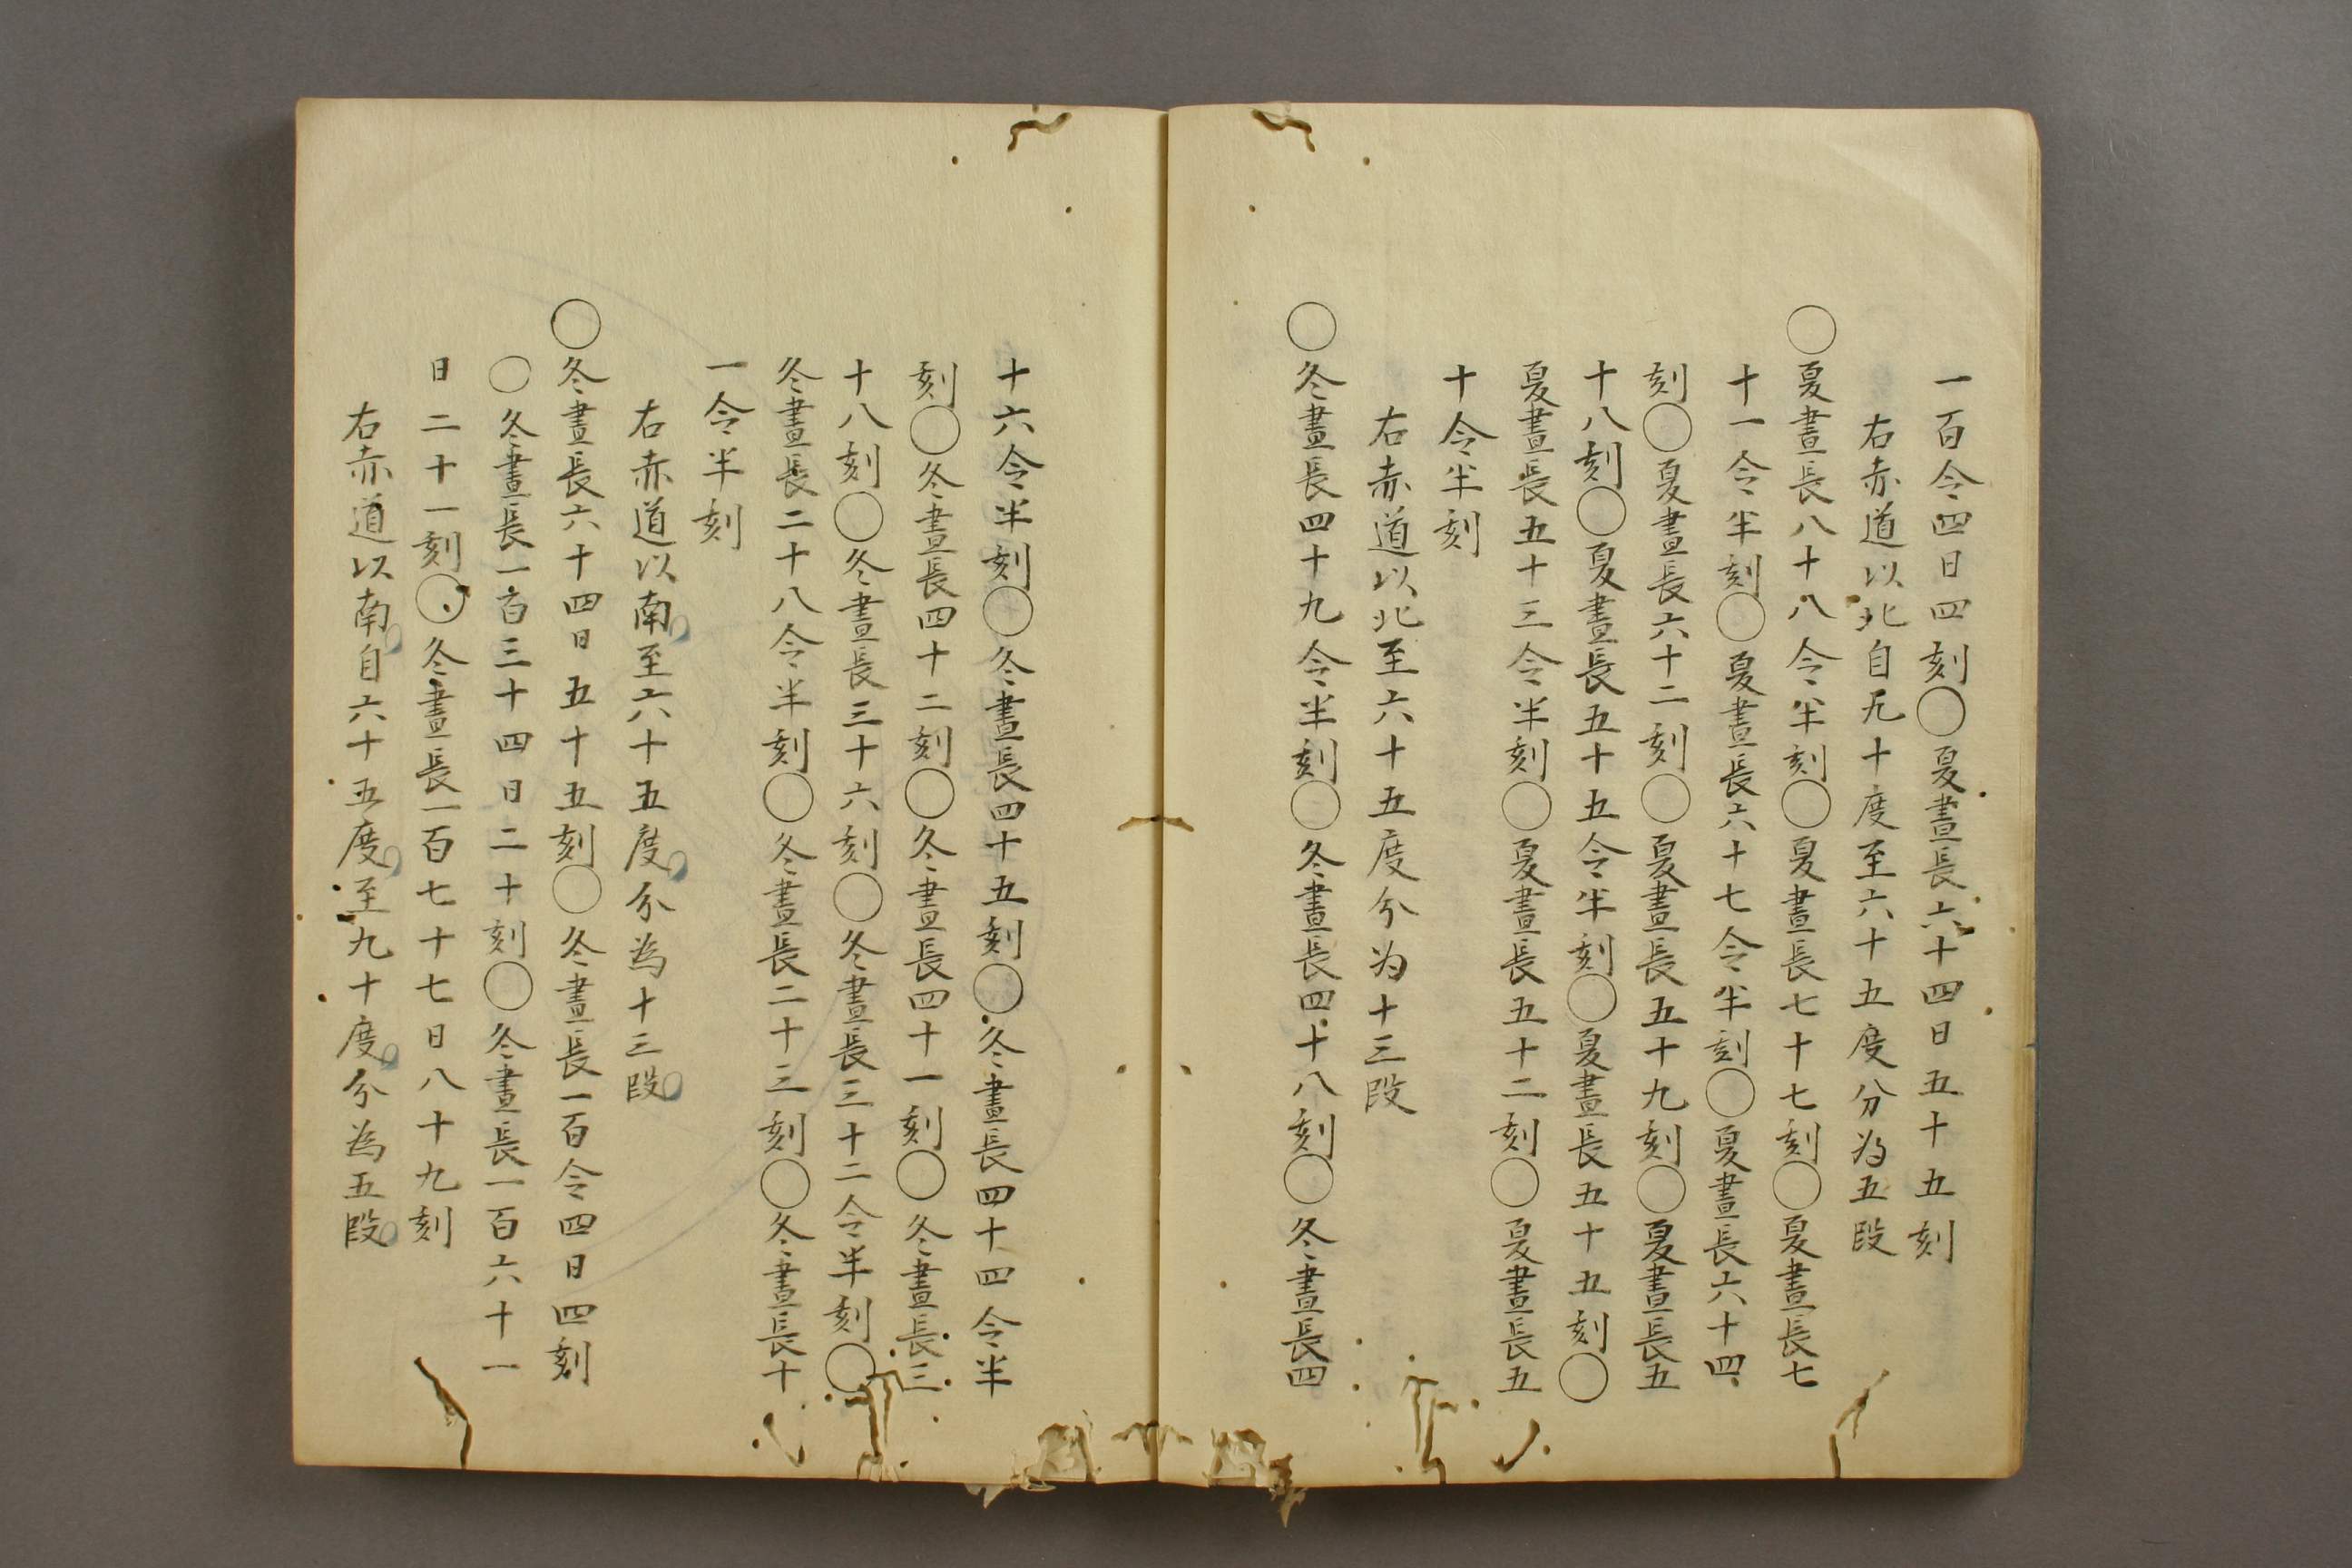 一百令四日四刻〇夏晝長六十四日五十五刻
右赤道以北自九十度至六十五度分为五段
〇夏晝長八十八令半刻〇夏晝長七十七刻〇夏晝長七
十一令半刻〇夏晝長六十七令半刻〇夏晝長六十四
刻〇夏晝長六十二刻〇夏晝長五十九刻〇夏晝長五
十八刻〇夏晝長五十五令半刻〇夏晝長五十五刻〇
夏晝長五十三令半刻〇夏晝長五十二刻〇夏晝長五
十令半刻
右赤道以北至六十五度分为十三段
〇冬晝長四十九令半刻〇冬晝長四十八刻〇冬晝長四
十六令半刻〇冬晝長四十五刻〇冬晝長四十四令半
刻〇冬晝長四十二刻〇冬晝長四十一刻〇冬晝長三
十八刻〇冬晝長三十六刻〇冬晝長三十二令半刻〇
冬晝長二十八令半刻〇冬晝長二十三刻〇冬晝長十
一令半刻
右赤道以南至六十五度分為十三段
〇冬晝長六十四日五十五刻〇冬晝長一百令四日四刻
〇冬晝長一百三十四日二十刻〇冬晝長一百六十一
日二十一刻〇冬晝長一百七十七日八十九刻
右赤道以南自六十五度至九十度分為五段